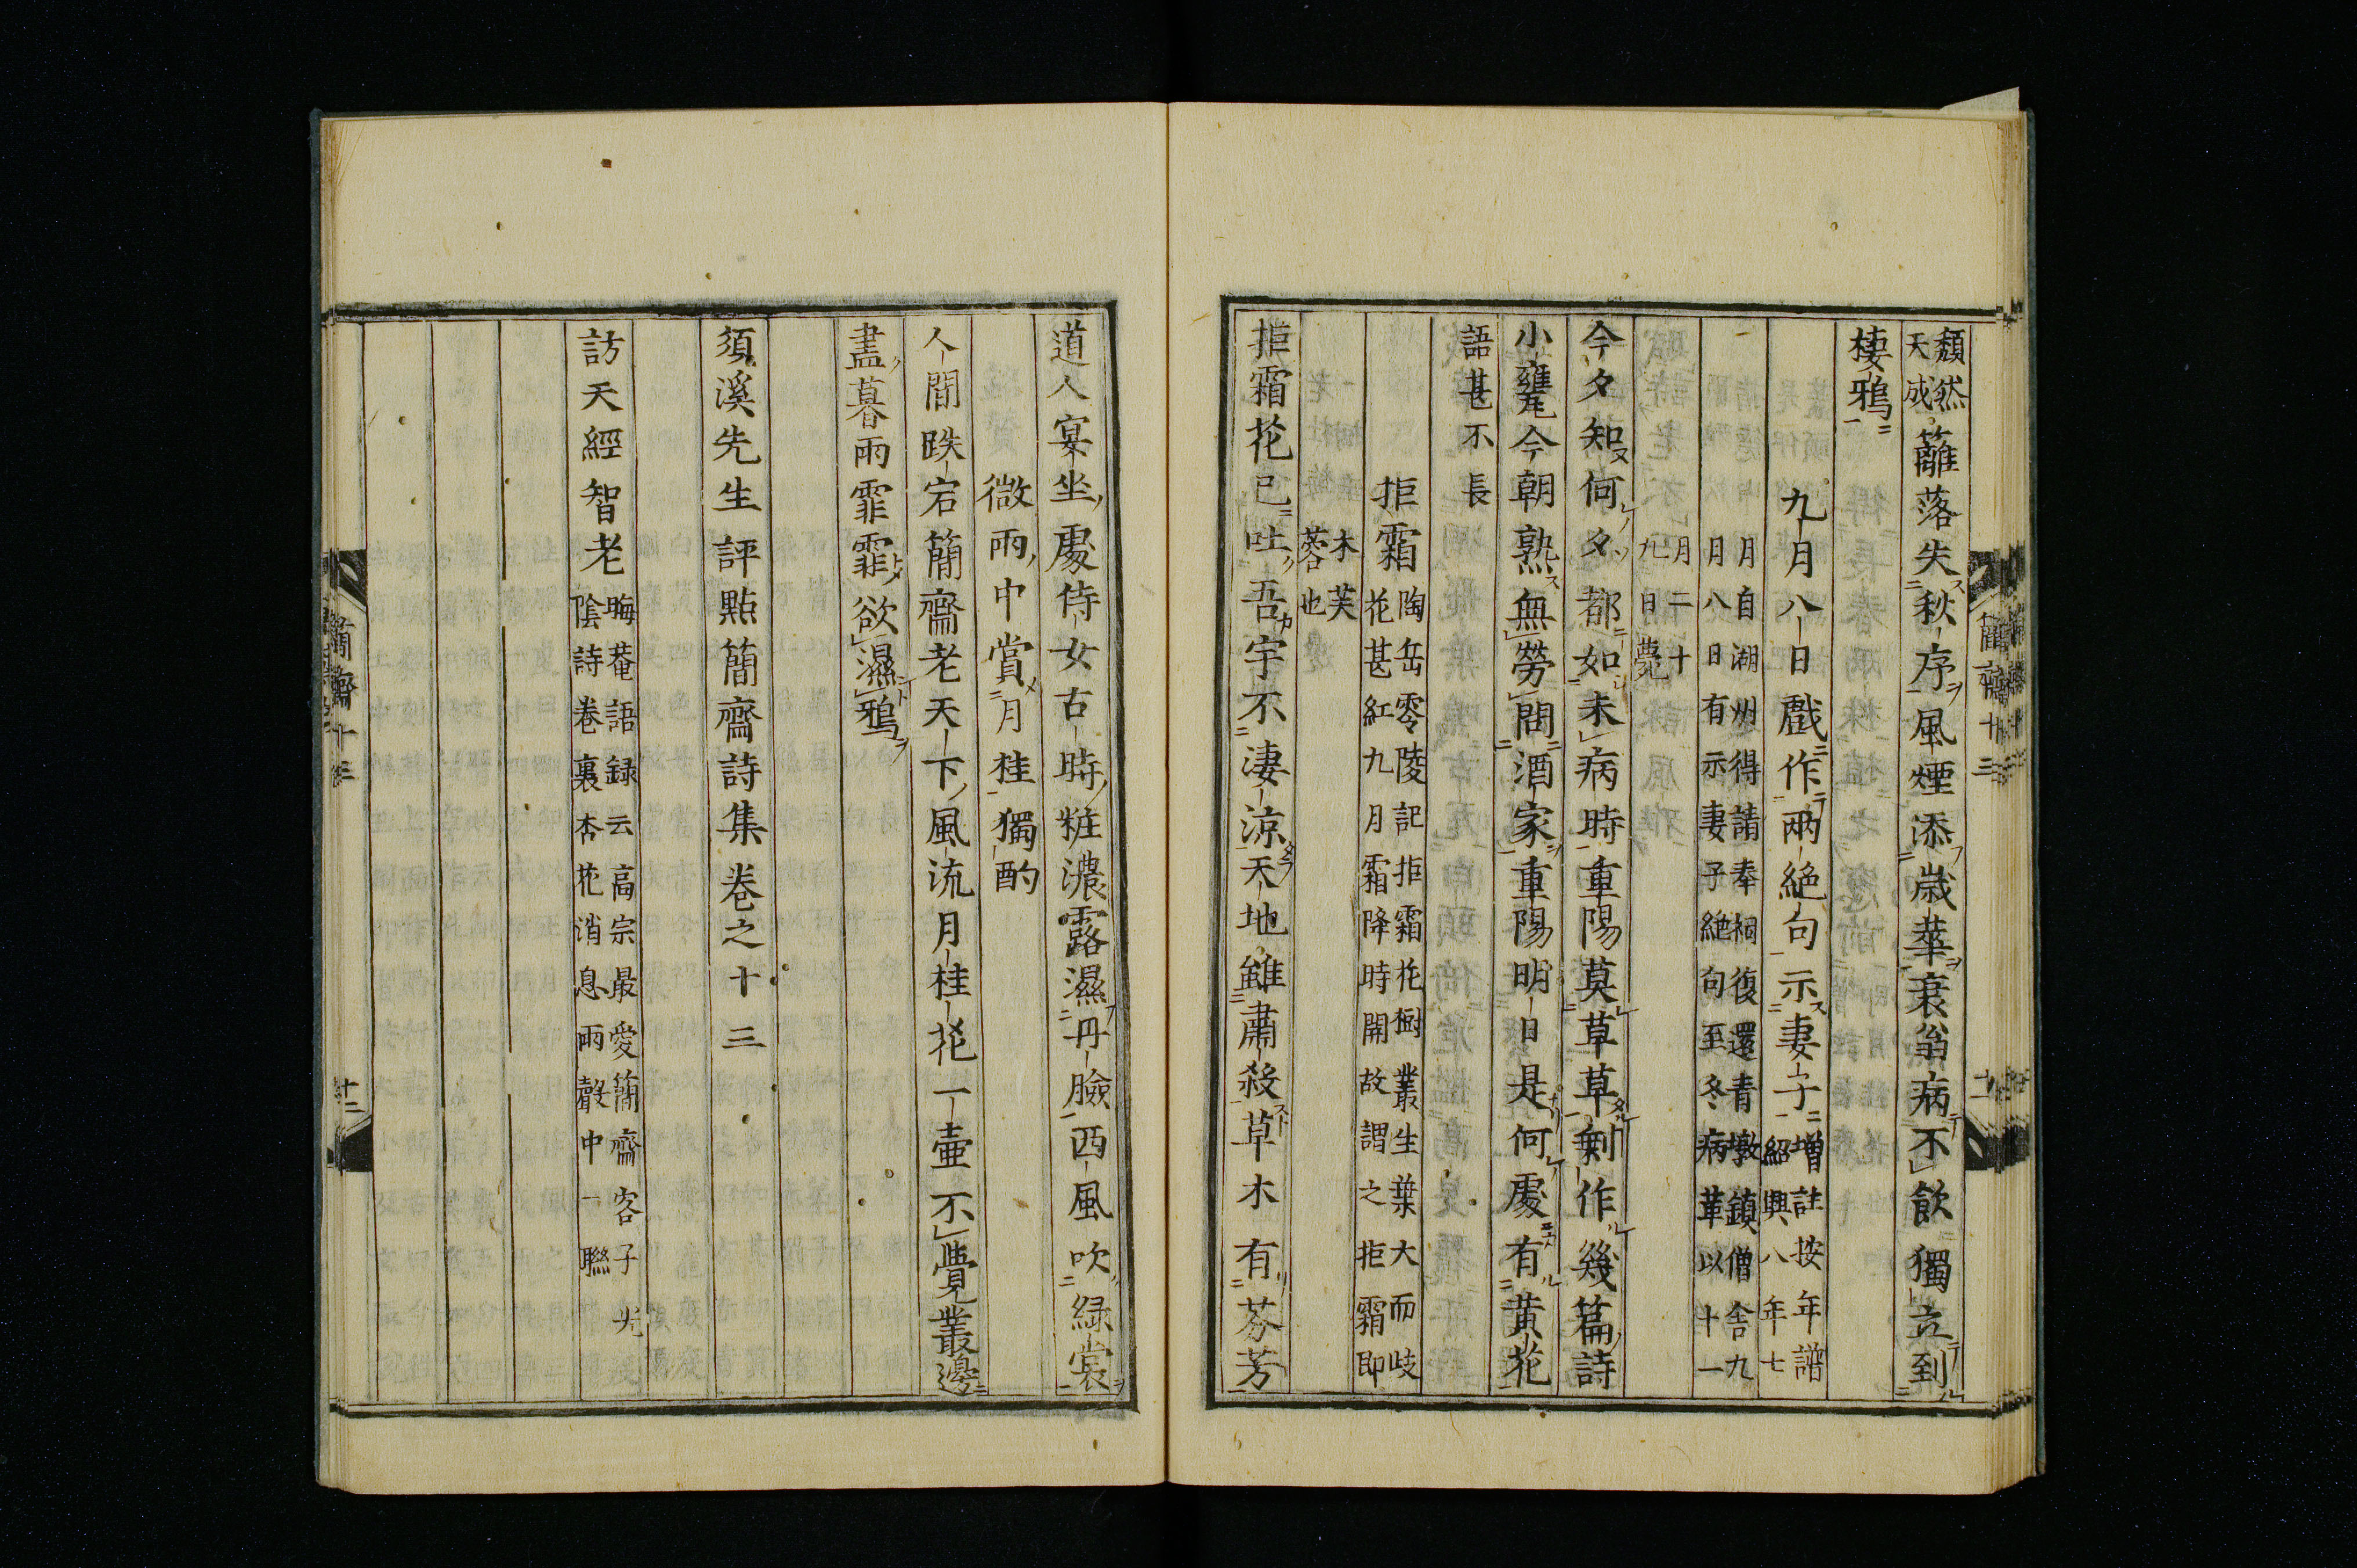 頽然
天成
籬落失秋序風煙添歳華衰翁病不飲獨立到
棲鴉
九月八日戲作兩絶句示妻子
増註按年譜
紹興八年七
月自湖州得請奉祠復還青墩鎮僧舎九
月八日有示妻子絶句至冬病革以十一
月二十
九日薨
今夕知何夕都如未病時重陽莫草草剰作幾篇詩
小甕今朝熟無勞問酒家重陽明日是何處有黄花
語甚不長
拒霜
陶岳零陵記拒霜花樹叢生葉大而歧
花甚紅九月霜降時開故謂之拒霜即
木芙
蓉也
拒霜花已吐吾宇不淒涼天地雖肅殺草木有芬芳
道人宴坐處侍女古時粧濃露濕丹臉西風吹緑裳
微雨中賞月桂獨酌
人間跌宕簡齋老天下風流月桂花一壷不覺叢邊
盡暮雨霏霏欲濕鴉
須溪先生評點簡齋詩集卷之十三
訪天經智老
晦菴語録云高宗最愛簡齋客子光
陰詩卷裏杏花消息雨聲中一聯
簡齋十三
十二